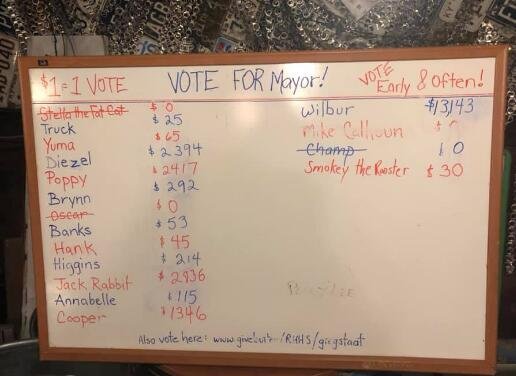 $1=1 VOTE
VOTE FOR Mayor!
VOTE Early & Often!
Stella the Fat Cat $ 0
Truck $ 25
Yuma $ 65
Diezel $ 2394
Poppy $ 2417
Brynn $ 292
Oscar $ 0
Banks $ 53
Hank $ 45
Higgins $ 214
Jack Rabbit $ 2936
Annabelle $ 115
Cooper $ 1346
Wilbur $13,143
Mike Calhoun $
Champ $ 0
Smokey the Rooster $ 30
Also vote here: